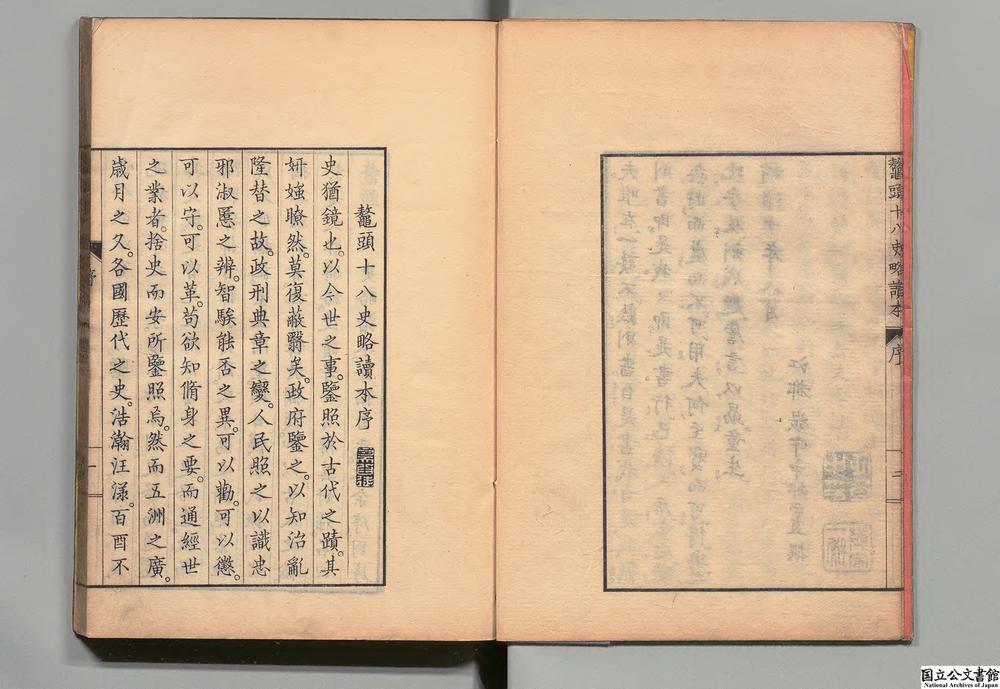 鼇頭十八史略讀本
序
二
鼇頭十八史略讀本序
史猶鏡也。以今世之事。鑒照於古代之蹟。其
姸媸瞭然。莫復蔽翳矣。政府鑒之。以知治亂
隆替之故。政刑典章之變。人民照之以識忠
邪淑慝之辨。智騃能否之異。可以勸。可以懲。
可以守。可以革。苟欲知脩身之要。而通經世
之業者。捨史而安所鑒照焉。然而五洲之廣。
歲月之久。各國歷代之史。浩瀚汪漾。百酉不
序
一
国立公文書館
National Archives of Japan